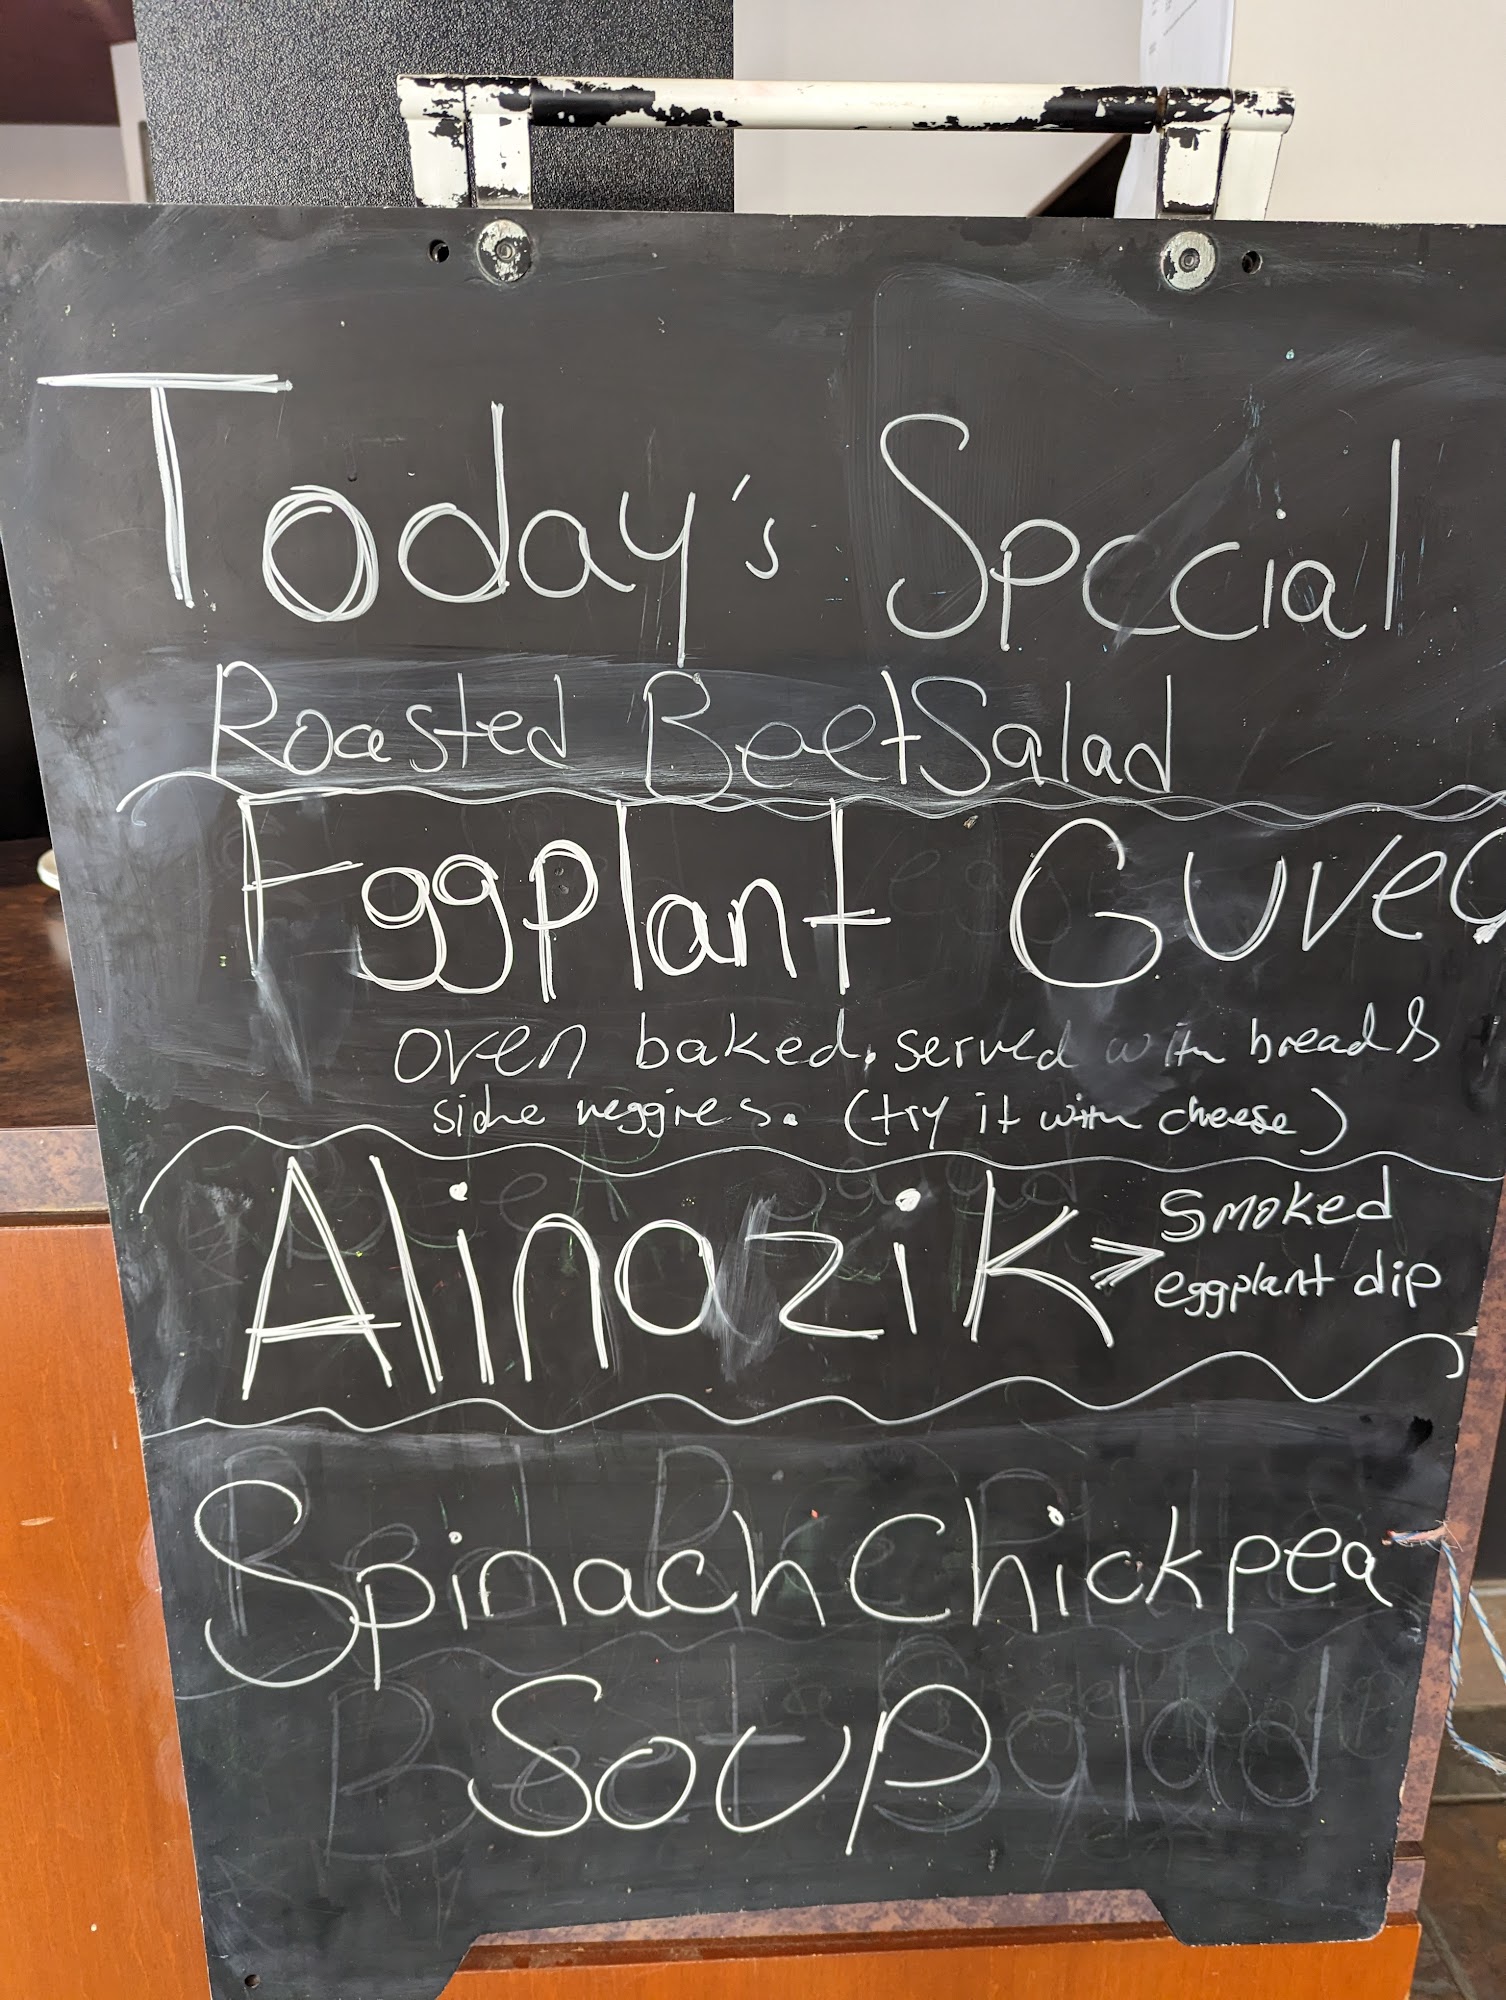 Today's Special
Roasted Beet Salad
Eggplant Guvec
oven baked, served with bread &
side veggies. (try it with cheese)
Alinazik > smoked
eggplant dip
Spinach Chickpea
Soup